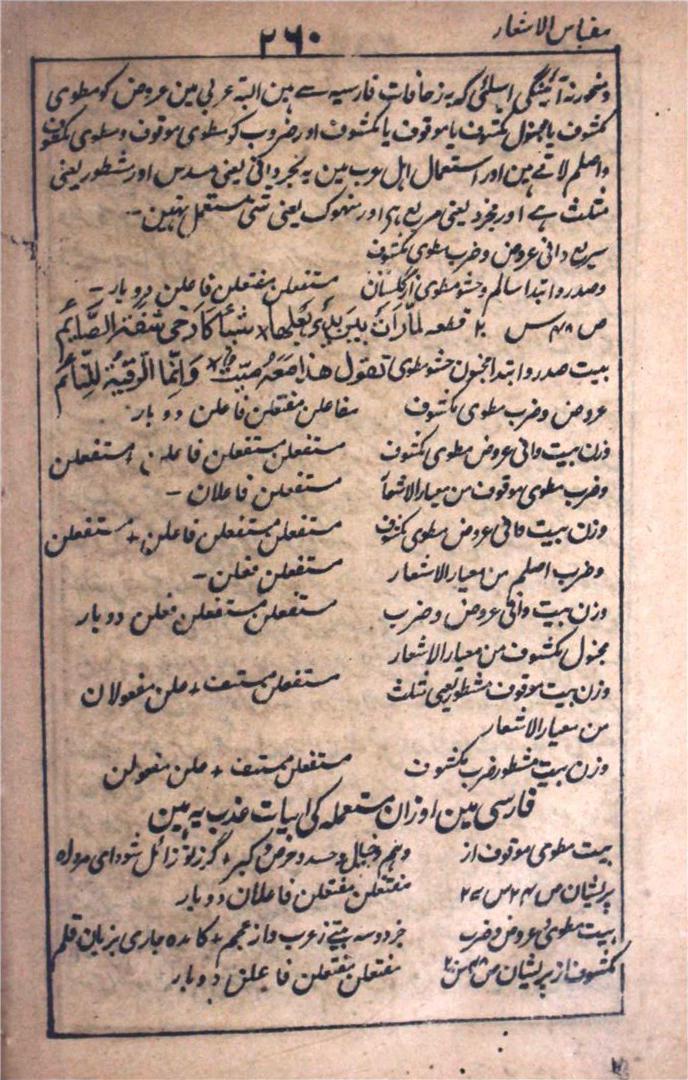 مقیاس الاشعار
۲۶۰
کہ یہ زحافات فارسیہ سے ہین البتہ عربی مین عروض کو مطوی
مکشوف یا مخبول مکشوف یا موقوف یا مکشوف اور ضروب کو مطوی موقوف و مطوی مکشوف
و اصلم لاتے ہین اور استعمال اہل عرب مین یہ بحر وافی یعنی مسدس اور مشطور یعنی
مثلث ہے اور مجزو یعنی مربع اور منہوک یعنی مثنی مستعمل نہین ۔
سریع وافی عروض و ضرب مطوی مکشوف
و صدر و ابتدا سالم و حشو مطوی از گلستان مستفعلن مفتعلن فاعلن دو بار ۔
ص ۴۸ س ۲ قطعہ لما رأت بین یدی بعلها شیئا کارخی شفة الصایم
بیت صدر و ابتدا مخبون حشو مطوی تقول هذا معه میت و انما الرقیة للنائم
عروض و ضرب مطوی مکشوف مفاعلن مفتعلن فاعلن دو بار
وزن بیت وافی عروض مطوی مکشوف مستفعلن مستفعلن فاعلن + مستفعلن
و ضرب مطوی موقوف من معیار الاشعار مستفعلن فاعلان ۔
وزن بیت وافی عروض مطوی مکشوف مستفعلن مستفعلن فاعلن + مستفعلن
و ضرب اصلم من معیار الاشعار مستفعلن فعلن ۔
وزن بیت وافی عروض و ضرب مستفعلن مستفعلن فعلن دو بار
مخبول مکشوف من معیار الاشعار
وزن بیت موقوف مشطور یعنی مثلث مستفعلن مستف + علن مفعولان
من معیار الاشعار
وزن بیت مشطور ضرب مکشوف مستفعلن مستف + علن مفعولن
فارسی مین اوزان مستعملہ کی ابیات عذب یہ ہین
بیت مطوی موقوف از وہم و خیال و حسد و حرص و کبر + گر ز تو زائل شود ای مرد راہ
پریشان ص ۲۴ س ۲۷ مفتعلن مفتعلن فاعلان دو بار
بیت مطوی عروض و ضرب جز دو سہ بیتے ز عرب و از عجم + کامدہ جاری بزبان قلم
مکشوف از پریشان مفتعلن مفتعلن فاعلن دو بار